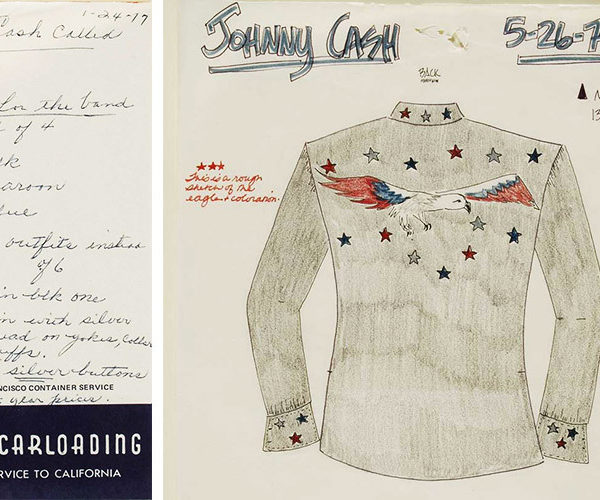 1-24-77
Cash Called
for the band
of 4
lk
aroon
lue
outfits instead
of 6
in blk one
in with silver
ead on yokes, collar
ffs.
silver buttons
NCISCO CONTAINER SERVICE
year prices.
CARLOADING
RVICE TO CALIFORNIA
JOHNNY CASH
5-26-7
BACK
This is a rough
sketch of the
eagle + coloration.
13